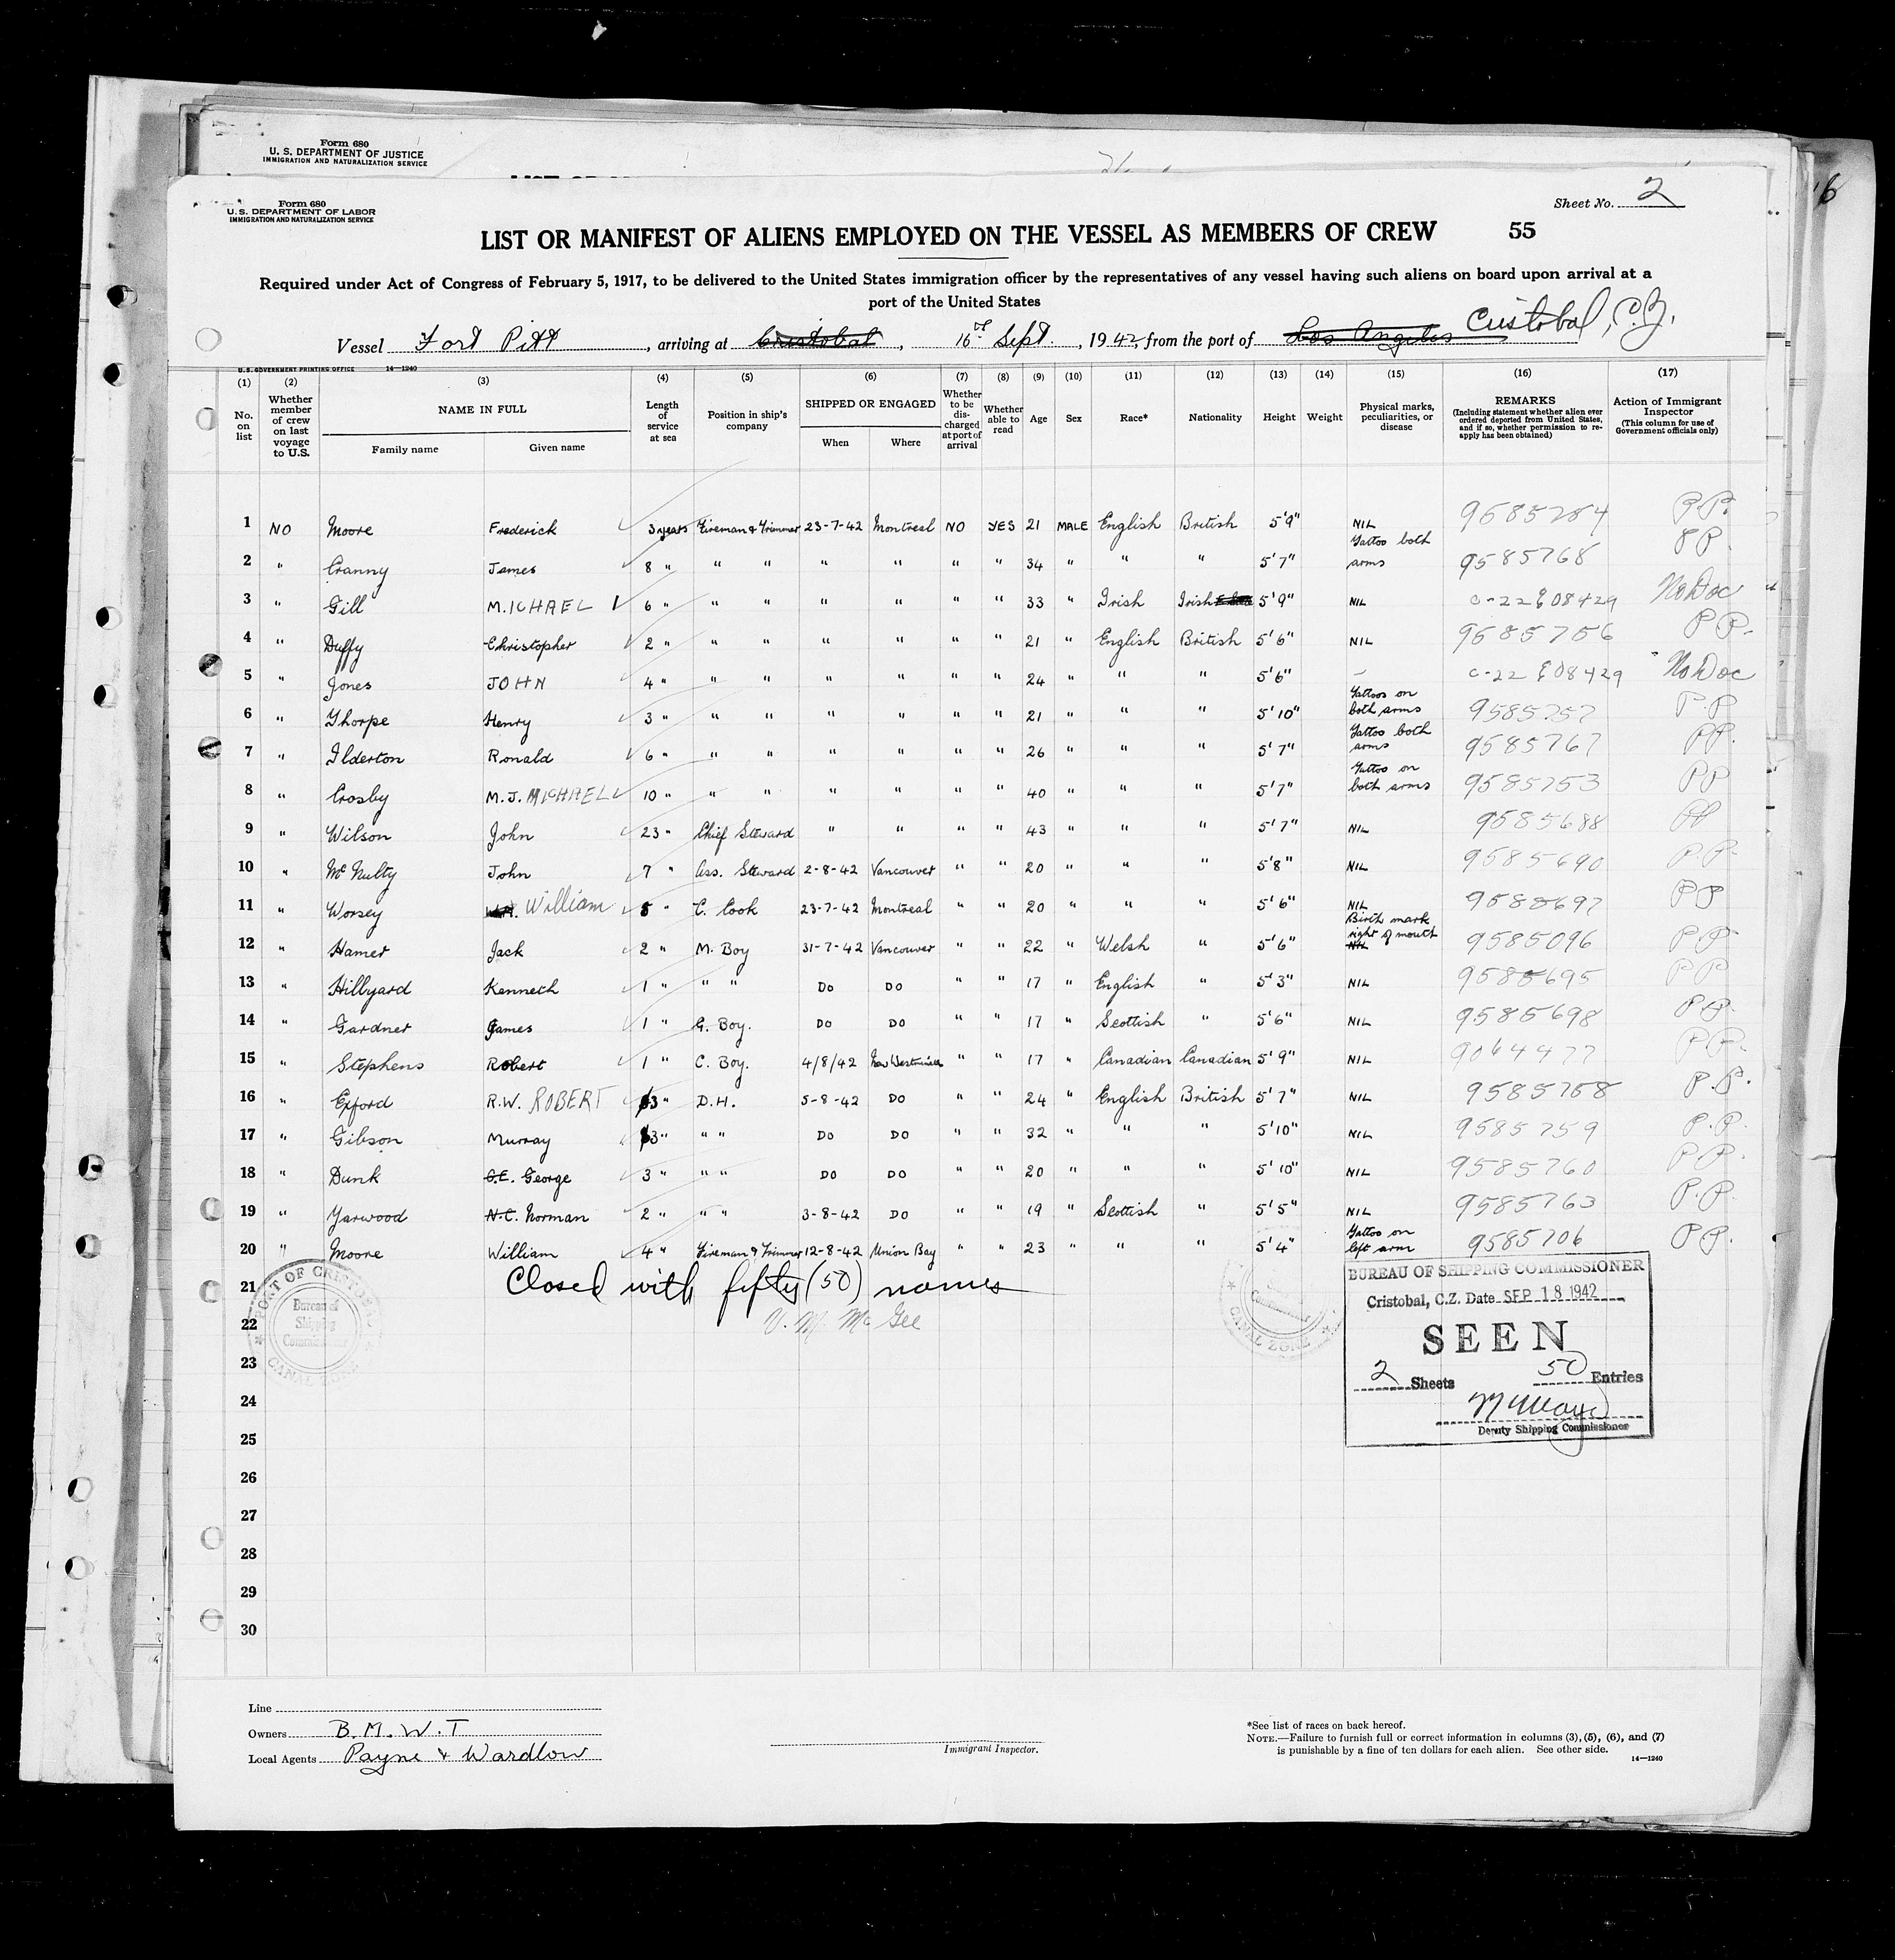 Form 680
U. S. DEPARTMENT OF JUSTICE
IMMIGRATION AND NATURALIZATION SERVICE
6
Form 680
U.S. DEPARTMENT OF LABOR
IMMIGRATION AND NATURALIZATION SERVICE
Sheet No. 2
LIST OR MANIFEST OF ALIENS EMPLOYED ON THE VESSEL AS MEMBERS OF CREW 55
Required under Act of Congress of February 5, 1917, to be delivered to the United States immigration officer by the representatives of any vessel having such aliens on board upon arrival at a
port of the United States
Vessel Fort Pitt, arriving at Cristobal, 16th Sept., 1942, from the port of Los Angeles Cristobal, C.Z.
U.S. GOVERNMENT PRINTING OFFICE 14—1240
(1) (2) (3) (4) (5) (6) (7) (8) (9) (10) (11) (12) (13) (14) (15) (16) (17)
No. on list
Whether member of crew on last voyage to U.S.
NAME IN FULL
Family name
Given name
Length of service at sea
Position in ship's company
SHIPPED OR ENGAGED
When
Where
Whether to be discharged at port of arrival
Whether able to read
Age
Sex
Race*
Nationality
Height
Weight
Physical marks, peculiarities, or disease
REMARKS
(Including statement whether alien ever ordered deported from United States, and if so, whether permission to reapply has been obtained)
Action of Immigrant Inspector
(This column for use of Government officials only)
1 NO Moore Frederick 3 years Fireman & Trimmer 23-7-42 Montreal NO YES 21 MALE English British 5'9" NIL 9585284 P.P.
2 " Cranny James 8 " " " " " " " 34 " " " 5'7" Tattoo both arms 9585768 PP.
3 " Gill M.ICHAEL 6 " " " " " " " 33 " Irish Irish 5'9" NIL C-22 E08429 No Doc
4 " Duffy Christopher 2 " " " " " " " 21 " English British 5'6" NIL 9585756 PP.
5 " Jones JOHN 4 " " " " " " " 24 " " " 5'6" — C-22 E08429 No Doc
6 " Thorpe Henry 3 " " " " " " " 21 " " " 5'10" Tattoos on both arms 9585757 P.P
7 " Ilderton Ronald 6 " " " " " " " 26 " " " 5'7" Tattoo both arms 9585767 PP.
8 " Crosby M.J. MICHAEL 10 " " " " " " " 40 " " " 5'7" Tattoo on both arms 9585753 PP
9 " Wilson John 23 " Chief Steward " " " " 43 " " " 5'7" NIL 9585688 PP
10 " McNulty John 7 " Ass. Steward 2-8-42 Vancouver " " 20 " " " 5'8" NIL 9585690 P.P.
11 " Worsey Wm. William 5 " C. Cook 23-7-42 Montreal " " 20 " " " 5'6" NIL 9585697 PP
12 " Hamer Jack 2 " M. Boy 31-7-42 Vancouver " " 22 " Welsh " 5'6" Birth mark right of mouth NIL 9585096 PP
13 " Hillyard Kenneth 1 " " " DO DO " " 17 " English " 5'3" NIL 9585695 PP
14 " Gardner James 1 " G. Boy. DO DO " " 17 " Scottish " 5'6" NIL 9585698 P.P.
15 " Stephens Robert 1 " C. Boy. 4/8/42 New Westminster " " 17 " Canadian Canadian 5'9" NIL 9064477 PP.
16 " Exford R.W. ROBERT 3 " D.H. 5-8-42 DO " " 24 " English British 5'7" NIL 9585758 P.P.
17 " Gibson Murray 3 " " " DO DO " " 32 " " " 5'10" NIL 9585759 P.P.
18 " Dunk G.E. George 3 " " " DO DO " " 20 " " " 5'10" NIL 9585760 P.P.
19 " Yarwood N.C. Norman 2 " " " 3-8-42 DO " " 19 " Scottish " 5'5" NIL 9585763 P.P.
20 " Moore William 4 " Fireman & Trimmer 12-8-42 Union Bay " " 23 " " " 5'4" Tattoo on left arm 9585706 PP.
21 Closed with fifty (50) names
22 V. M. McGee
23
24
25
26
27
28
29
30
PORT OF CRISTOBAL
Bureau of
Shipping
Commissioner
CANAL ZONE
CANAL ZONE
BUREAU OF SHIPPING COMMISSIONER
Cristobal, C.Z. Date SEP 18 1942
SEEN
2 Sheets 50 Entries
Deputy Shipping Commissioner
Line
Owners B.M.W.T
Local Agents Payne & Wardlow
Immigrant Inspector.
*See list of races on back hereof.
NOTE.—Failure to furnish full or correct information in columns (3), (5), (6), and (7)
is punishable by a fine of ten dollars for each alien. See other side.
14—1240